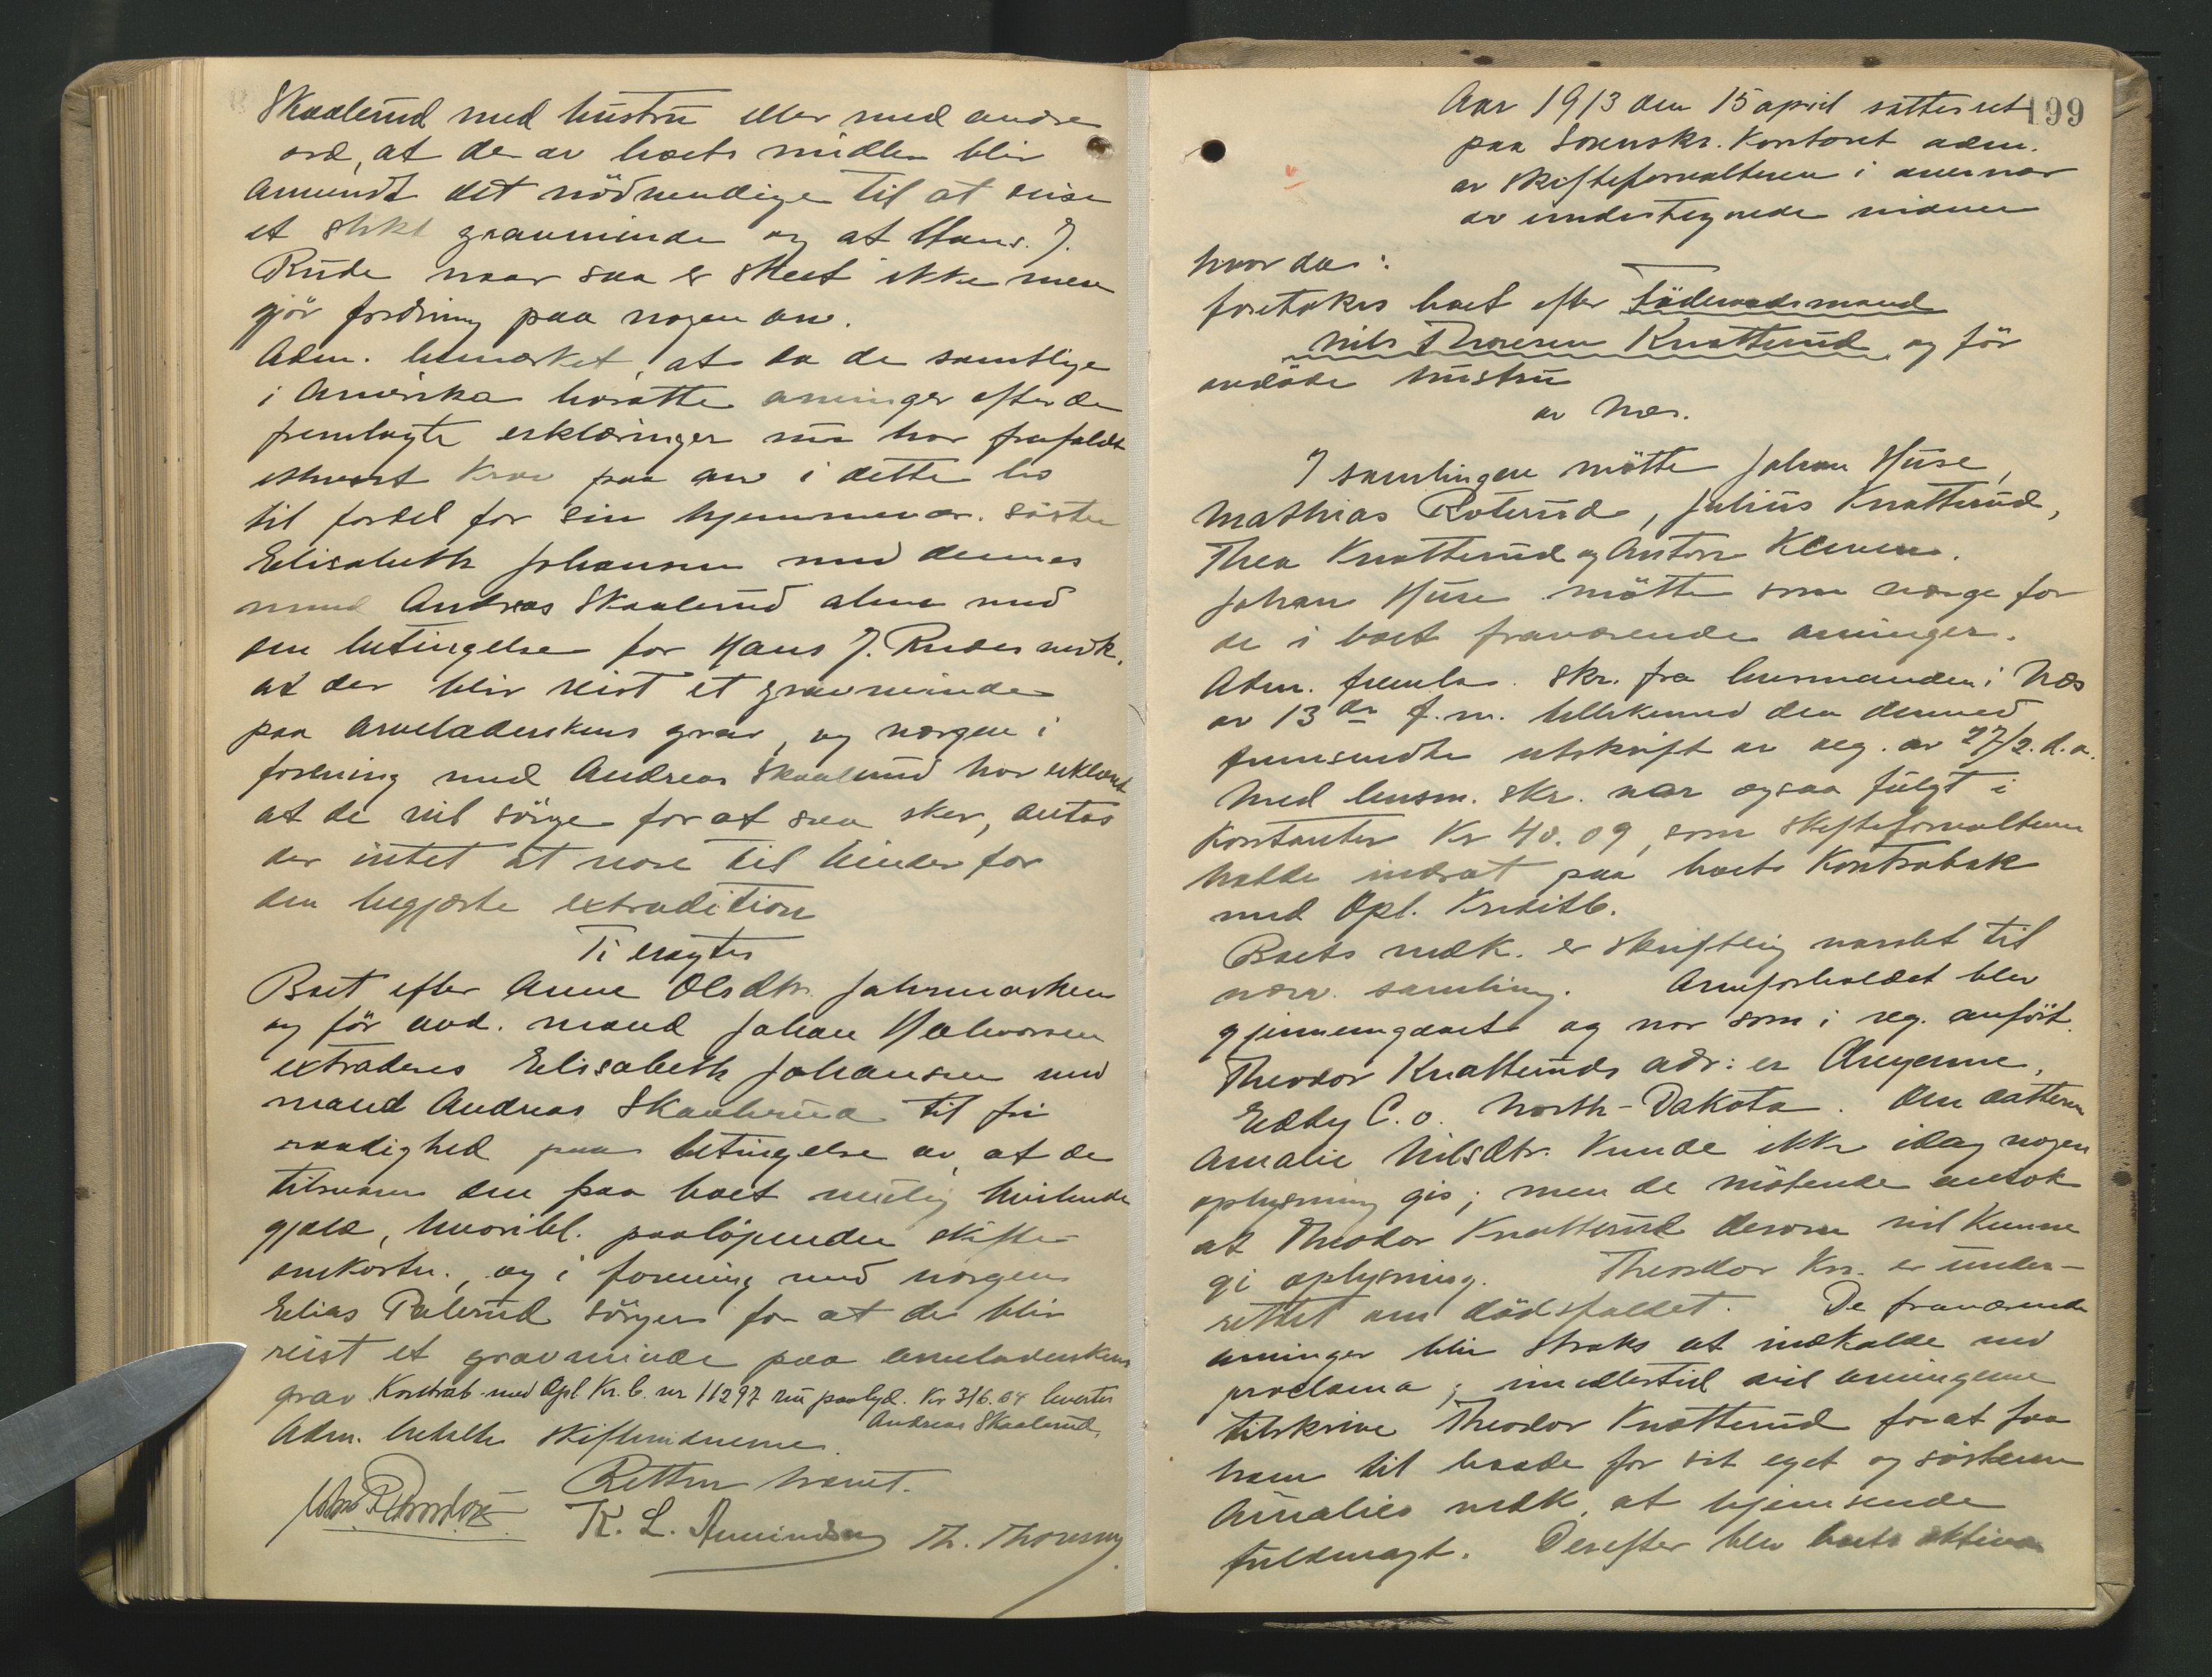 Skaalerud med hustru eller med andre
ord, at der av boets midler blir
anvendt det nödvendige til at reise
et slikt gravminde og at Hans J.
Rude naar saa er skeet ikke mere
gjör fordring paa nogen arv.
Adm. bemerket, at da de samtlige
i Amerika bosatte arvinger efter de
fremlagte erklæringer nu har frafaldt
ethvert krav paa arv i dette bo
til fordel for sin hjemmevær. söster
Elisabeth Johansen med dennes
mand Andreas Skaalerud alene med
den betingelse for Hans J. Rudes vedk.
at der blir reist et gravminde
paa arveladerskens grav, og værgen i
forening med Andreas Skaalerud har erklært
at de vil sörge for at saa sker, antas
der intet at være til hinder for
den begjærte extradition
Ti eragtes
Boet efter Anne Olsdtr. Johrmarken
og för avd. mand Johan Halvorsen
extraderes Elisabeth Johansen med
mand Andreas Skaalerud til fri
raadighed paa betingelse av, at de
tilsvarer den paa boet mulig hvilende
gjæld, hvoribl. paalöpende skifte-
omkostn., og i forening med værgen
Elias Palerud sörger for at der blir
reist et gravminde paa arveladerskens
grav Kontrab. med Opl. Kr. b. nr 11297 nu paalyd. Kr 316.04 levertes
Andreas Skaalerud.
Adm. betalte skiftevidnerne.
Retten hævet.
K. L. Amundsen Th. Thoresen
199
Aar 1913 den 15 april sattes ret
paa Sorenskr. Kontoret adm.
av skifteforvalteren i overvær
av undertegnede vidner
hvor da:
foretokes boet efter föderaadsmand
Nils Thoresen Knatterud og för
avdöde hustru
av Næs.
I samlingen mötte Johan Huse,
Mathias Roterud, Julius Knatterud,
Thea Knatterud og Anton Kleven.
Johan Huse mötte som værge for
de i boet fraværende arvinger.
Adm. fremla. skr. fra lensmanden i Næs
av 13 de f. m. tillikemed den dermed
fremsendte utskrift av reg. av 27/2. d. a.
Med lensm. skr. var ogsaa fulgt i
kontanter Kr 40.09, som skifteforvalteren
hadde indsat paa boets Kontrabok
med Opl. Kreditb.
Boets vedk. er skriftlig varslet til
nærv. samling. Arveforholdet blev
gjennemgaaet og var som i reg. anfört.
Theodor Knatteruds adr: er Cheyenne,
Eddy C.o. North-Dakota. Om datteren
Amalie Nilsdtr. kunde ikke idag nogen
oplysning gis; men de mötende antok
at Theodor Knatterud derom vil kunne
gi oplysning. Theodor Kn. er under-
rettet om dödsfaldet. De fraværende
arvinger blir straks at indkalde ved
proclama; imidlertid vil arvingerne
tilskrive Theodor Knatterud for at faa
ham til baade for sit eget og sösteren
Amalies vedk. at hjemsende
fuldmagt. Derefter blev boets aktiva